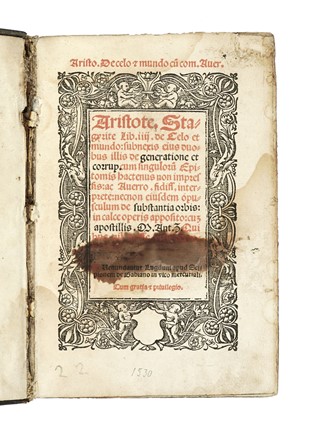 Aristo. De celo ⁊ mundo cū com. Auer.
Aristote. Sta-
grite Lib. iiij. de Celo et
mundo: subnexis eius duo-
bus illis de generatione et
corrup. cum singulorū Epi-
tomis hactenus non impres-
sis: ac Auerro. fidiss. inter-
prete: necnon eiusdem opu-
sculum de substantia orbis:
in calce operis apposito: cū
apostillis. M. Ant. Z
Venundantur Lugduni apud Sci-
pionem de Gabiano in vico Mercuriali.
Cum gratia ⁊ priuilegio.
22 1530